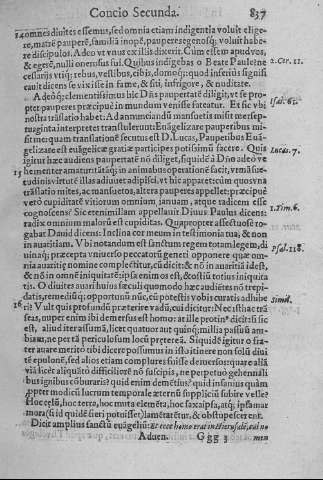 Concio Secunda. 837
14 omnes diuites essemus, sed omnia etiam indigentia voluit elige-
re, matrē pauperē, familiā inopē, pauperes egenosq; voluit habe-
re discipulos. Adeo vt vnus ex illis dixerit. Cum essem apud vos,
& egerē, nulli onerosus fui. Quibus indigebas o Beate Paule? ne
2. Cor. 11.
cessarijs vtiq; rebus, vestibus, cibis, domo
cauit dicens se vixisse in fame, & siti, infrigore, & nuditate.
A deo q; clementissimus hic Dñs paupertatē diligit, vt se pro-
pter pauperes præcipuè in mundum venisse fateatur. Et sic vbi
Isai. 61.
nostra trāslatio habet: Ad annunciandū mansuetis misit me: sep-
tuaginta interpretes transtulerunt: Euāgelizare pauperibus mi-
sit me: quam translationē secutus est D. Lucas, Pauperibus Euā-
gelizare est euāgelicæ gratiæ participes potissimū facere. Quis
Lucæ. 7.
igitur hæc audiens paupertatē nō diliget, siquidē à Dño adeo ve
15 hementer amari
titudinis virtutē illas adiuuet adipisci. vt hic apparet: cùm quosvna
trāslatio mites, ac mansuetos, altera pauperes appellet: præcipuè
verò cupiditatē vitiorum omnium, ianuam, atque radicem esse
cognoscens? Sic etenim illam appellauit Diuus Paulus dicens:
1. Tim. 6.
radix omnium malorū est cupiditas. Quapropter affectuosè ro-
gabat Dauid dicens: Inclina cor meum in testimonia tua; & non
in auaritiam. Vbi notandum est sanctum regem totam legem, di
Psal. 118.
uinaq; præcepta vniuerso peccatorū generi opponere quæ om-
nia auaritiæ nomine complectitur, cū dicit: & nō in auaritiā idest,
& nō in omnē iniquitatē: ipsa enim os est, & ostiū totius iniquita
tis. O diuites auari huius sæculi quomodo hæc audiētes nō trepi-
datis, remediūq; opportunū nūc, cū potestis vobis curatis adhibe
Simil.
16 ri? Vult quis profundū præterire vadū, cui dicitur: Ne
feras, nuper enim ibi demersus est homo: at ille protin9 dicit: si sic
est, aliud iter assumā, licet quatuor aut quinq; millia passuū am-
biam, ne per tā periculosum locū præterea. Si quidē igitur o fra-
ter auare meritò tibi dicere possumus in isto itinere non solū diui
tē epulonē, sed alios etiam complures fuisse demersos: quare aliā
viā licèt aliquātò difficiliorē nō suscipis, ne perpetuò gehennali-
bus ignibus cōburaris? quid enim demētius? quid insaniūs quàm
ppter modicū lucrum temporale æternū supplicium subire velle?
Hoc celū, hoc terra, hoc muta elemēta, hoc saxa ipsa, atq; ipsamar
mora (si id quidē fieri potuisset) lamētarētur, & obstupescerent.
Dicit amplius sanctū euāgeliū: Et ecce homo erat in Hierusalē, cui no
Aduen. Ggg 3 men